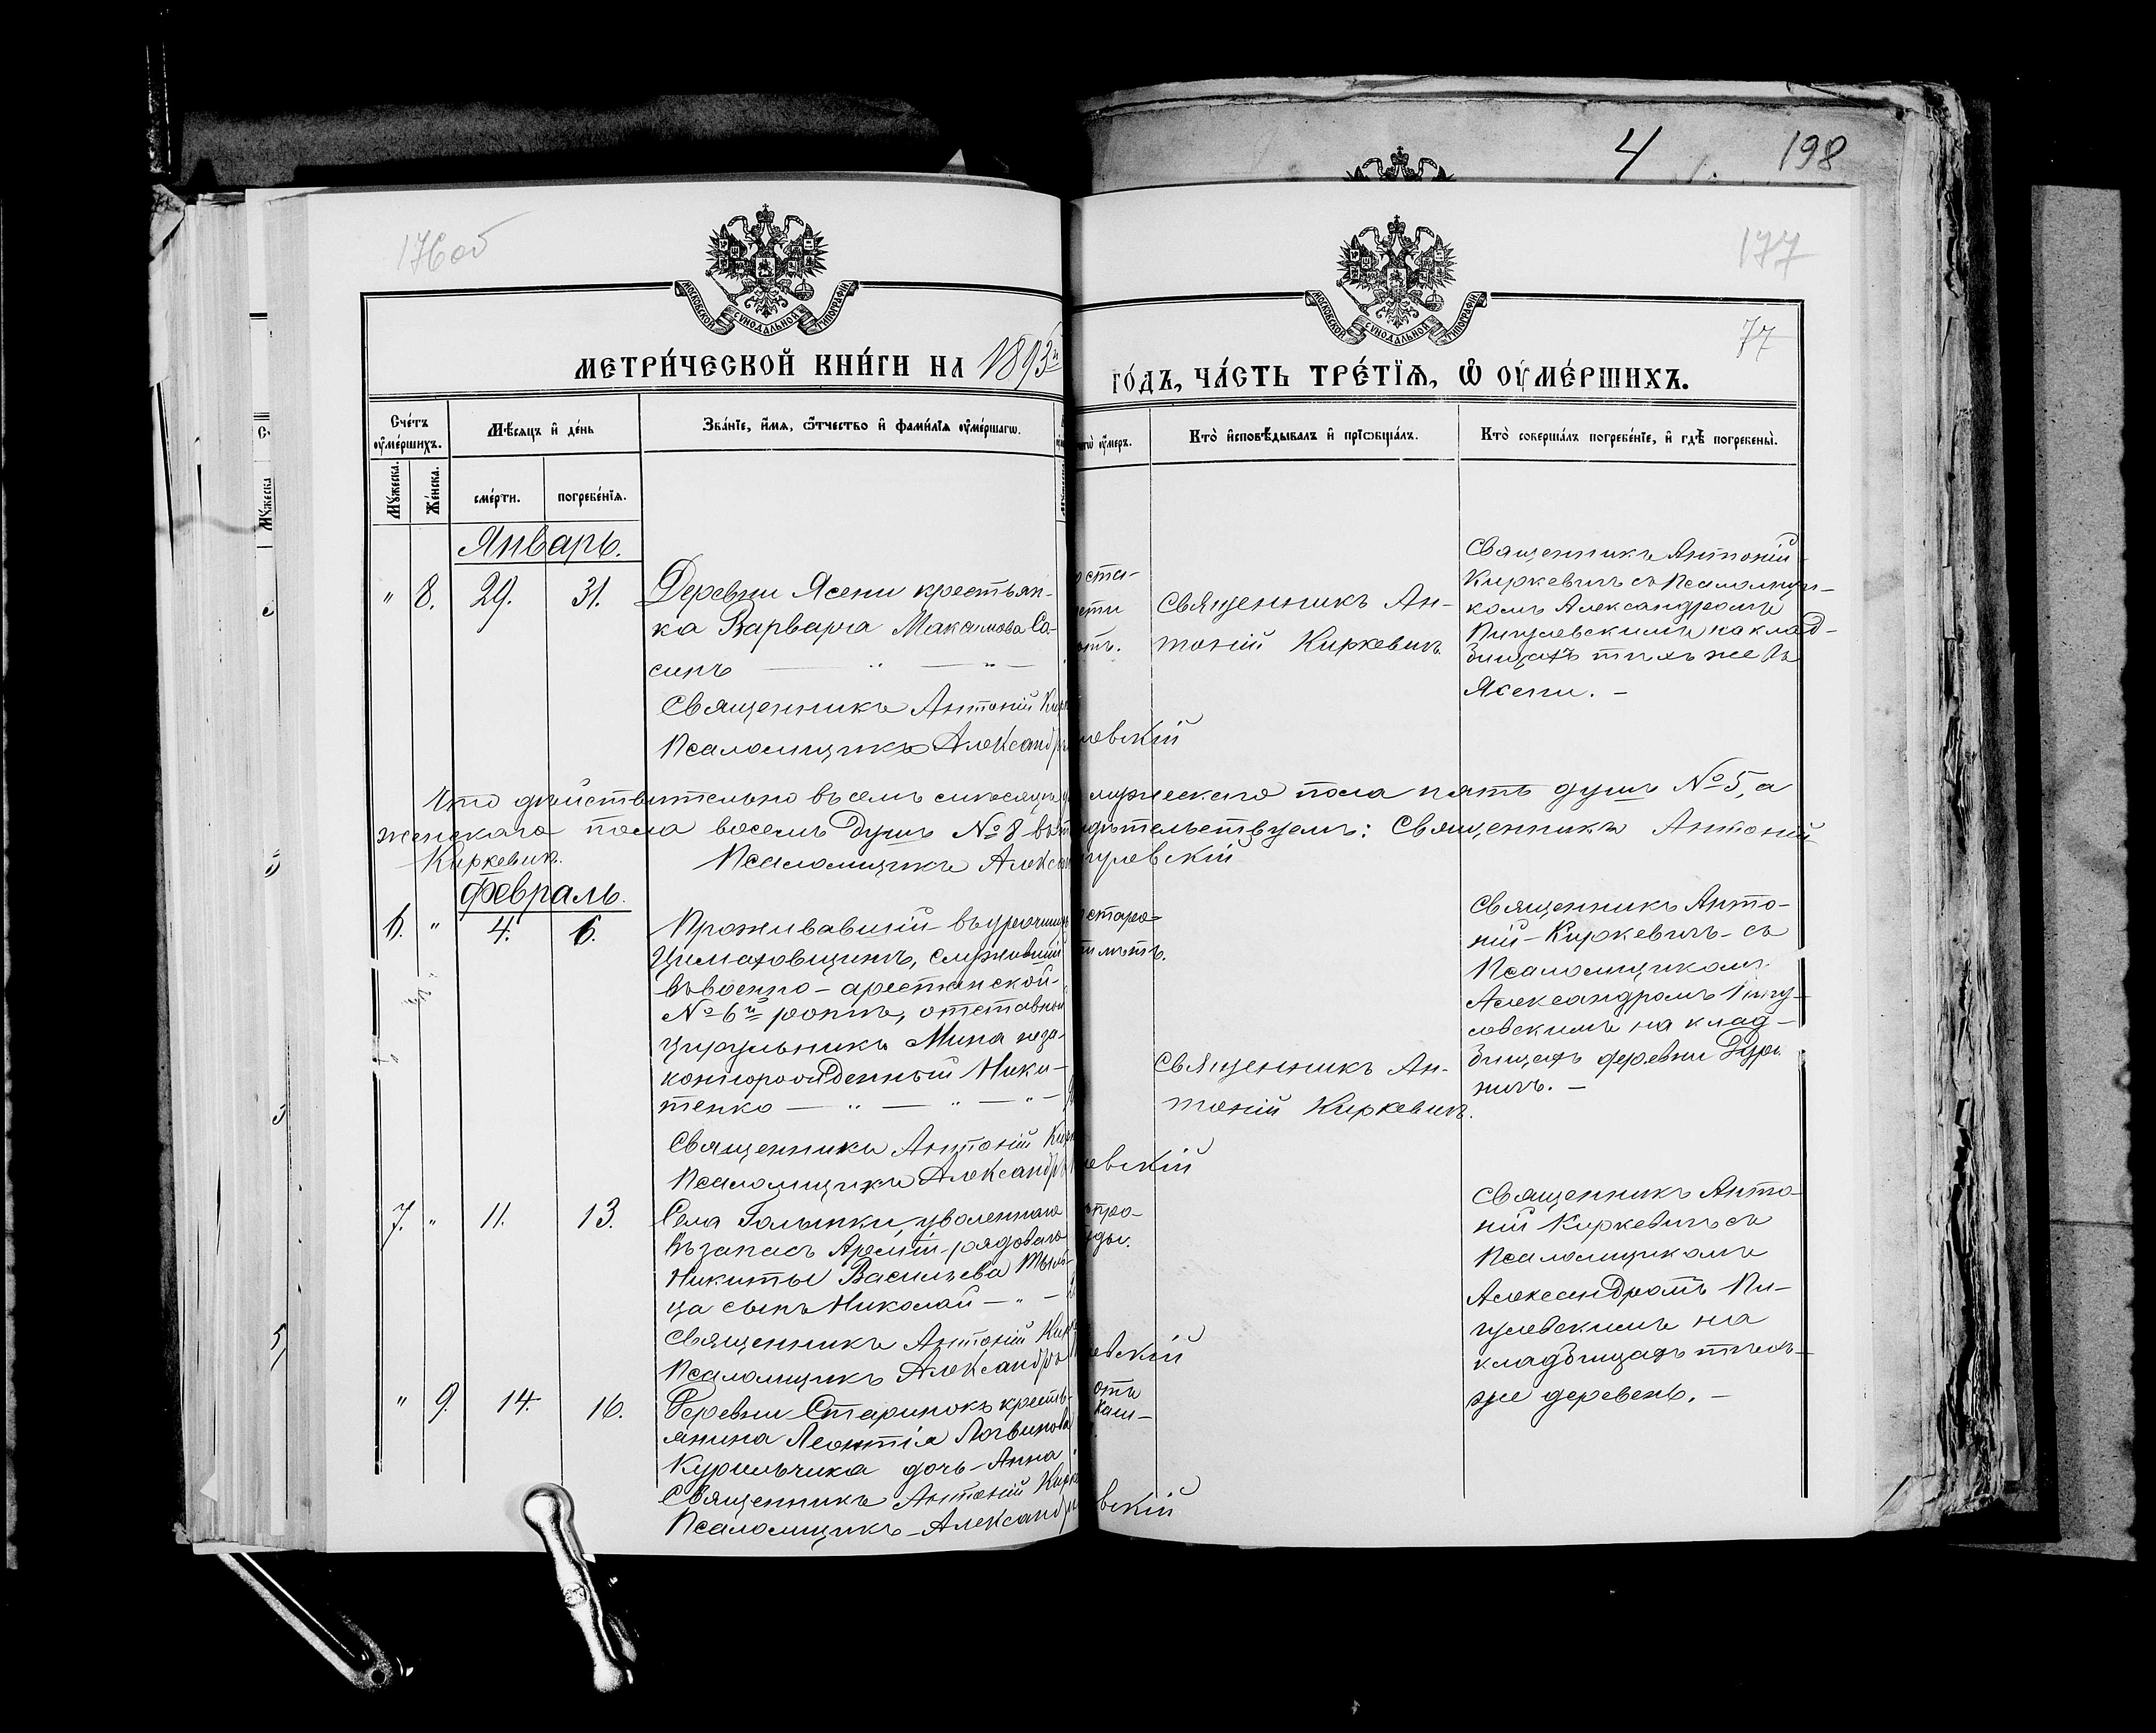 4 198
176об
177
77
МОСКОВСКОЙ СУНОДАЛЬНОЙ ТИПОГРАФІИ
МОСКОВСКОЙ СУНОДАЛЬНОЙ ТИПОГРАФІИ
МЕТРИ́ЧЕСКОЙ КНИ́ГИ НА 1893й
ГО́ДЪ, ЧА́СТЬ ТРЕ́ТІЯ, Ѡ ОУМЕ́РШИХЪ.
Сче́тъ оумéршихъ.
Мужеска.
Же́нска.
Мѣ́сяцъ и де́нь
сме́рти.
погребе́нїя.
Зва́нїе, и́мя, ѻ́тчество и фами́лїя оумéршагѡ.
оу́меръ.
Кто̀ исповѣ́дывалъ и прїѡбща́лъ.
Кто̀ соверша́лъ погребе́нїе, и гдѣ̀ погребены̀.
Январь.
" 8. 29. 31.
Деревни Ясени крестьян-
ка Варвара Максимова Са-
синъ — " — " —
Священникъ Антоній
Псаломщикъ Александръ
ловскій
ста-
сти
Священникъ Ан-
тоній Киркевичъ.
Священникъ Антоній
Киркевичъ съ Псаломщи-
комъ Александромъ
Пигулевскимъ на клад-
бищахъ тѣхъ же въ
Ясени. —
Что дѣйствительно въ семъ мѣсяцѣ
мужескаго пола пять душъ № 5, а
женскаго пола восемь душъ № 8 въ
дѣтельствуемъ: Священникъ Антоній
Киркевичъ.
Псаломщикъ Алекса
гулевскій
Февраль.
6. " 4. 6.
Проживавшій въ урочищѣ
Цималовщинѣ, служившій
въ военно-арестанской
№ 6й ротѣ, отставной
цирульникъ Мина неза-
коннорожденный Ники-
тенко — " — " — " —
Священникъ Антоній
Псаломщикъ Александръ
левскій
старо-
Священникъ Ан-
тоній Киркевичъ.
Священникъ Анто-
ній Киркевичъ съ
Псаломщикомъ
Александромъ Пигу-
левскимъ на клад-
бищахъ деревни
7. " 11. 13.
Села Голынки, уволеннаго
въ запасъ Арміи рядоваго
Никиты Васильева
ца сынъ Николай — " —
Священникъ Антоній
Псаломщикъ Александръ
левскій
про-
Священникъ Анто-
ній Киркевичъ съ
Псаломщикомъ
Александромъ Пи-
гулевскимъ на
кладбищахъ тѣхъ-
же деревень. —
" 9. 14. 16.
Деревни Старинокъ кресть-
янина Леонтія Логвинова
Курильчика дочь Анна
Священникъ Антоній
Псаломщикъ Александръ
вскій
отъ
каш-